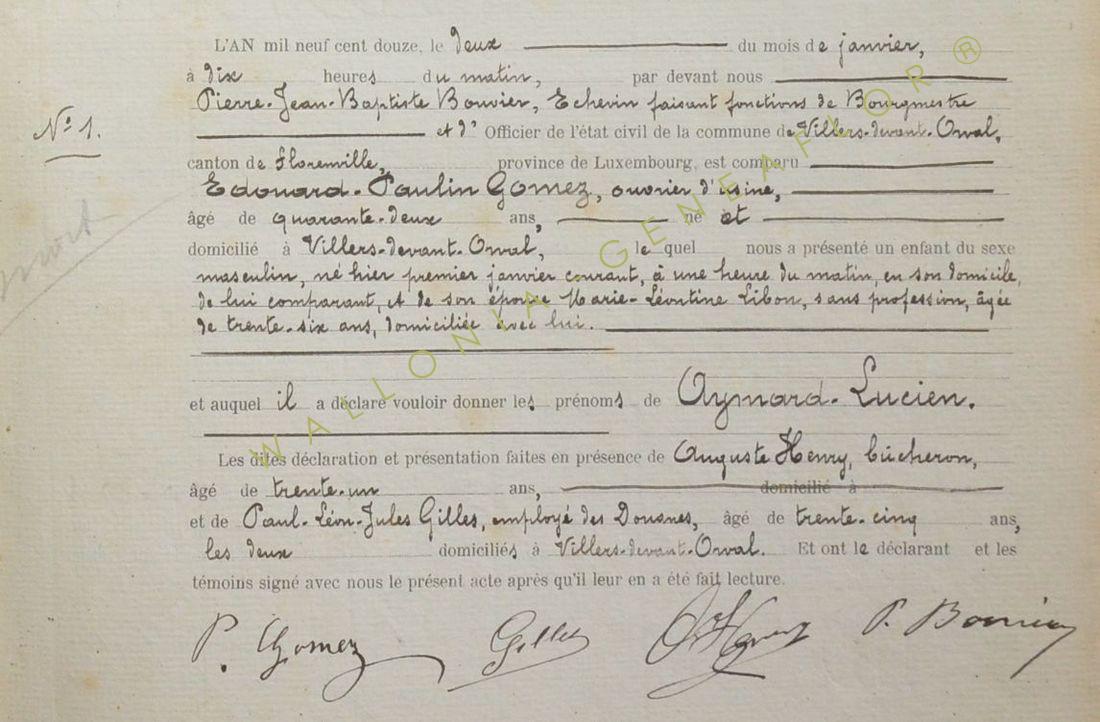 L'AN mil neuf cent douze, le deux du mois de janvier,
à dix heures du matin, par devant nous
Pierre-Jean-Baptiste Bouvier, Echevin faisant fonctions de Bourgmestre
N° 1.
et d' Officier de l'état civil de la commune de Villers-devant-Orval,
canton de Florenville, province de Luxembourg, est comparu
Edouard-Paulin Gomez, ouvrier d'usine,
âgé de quarante-deux ans, né et
domicilié à Villers-devant-Orval, le quel nous a présenté un enfant du sexe
masculin, né hier premier janvier courant, à une heure du matin, en son domicile,
de lui comparant, et de son épouse Marie-Léontine Libon, sans profession, âgée
de trente-six ans, domiciliée avec lui.
et auquel il a déclaré vouloir donner les prénoms de Aymard-Lucien.
Les dites déclaration et présentation faites en présence de Auguste Henry, bûcheron,
âgé de trente-un ans, domicilié à
et de Paul-Léon-Jules Gilles, employé des Douanes, âgé de trente-cinq ans,
les deux domiciliés à Villers-devant-Orval. Et ont le déclarant et les
témoins signé avec nous le présent acte après qu'il leur en a été fait lecture.
P. Gomez Gilles Henry P. Bouvier
WALLONIA GENEAFLOR ®